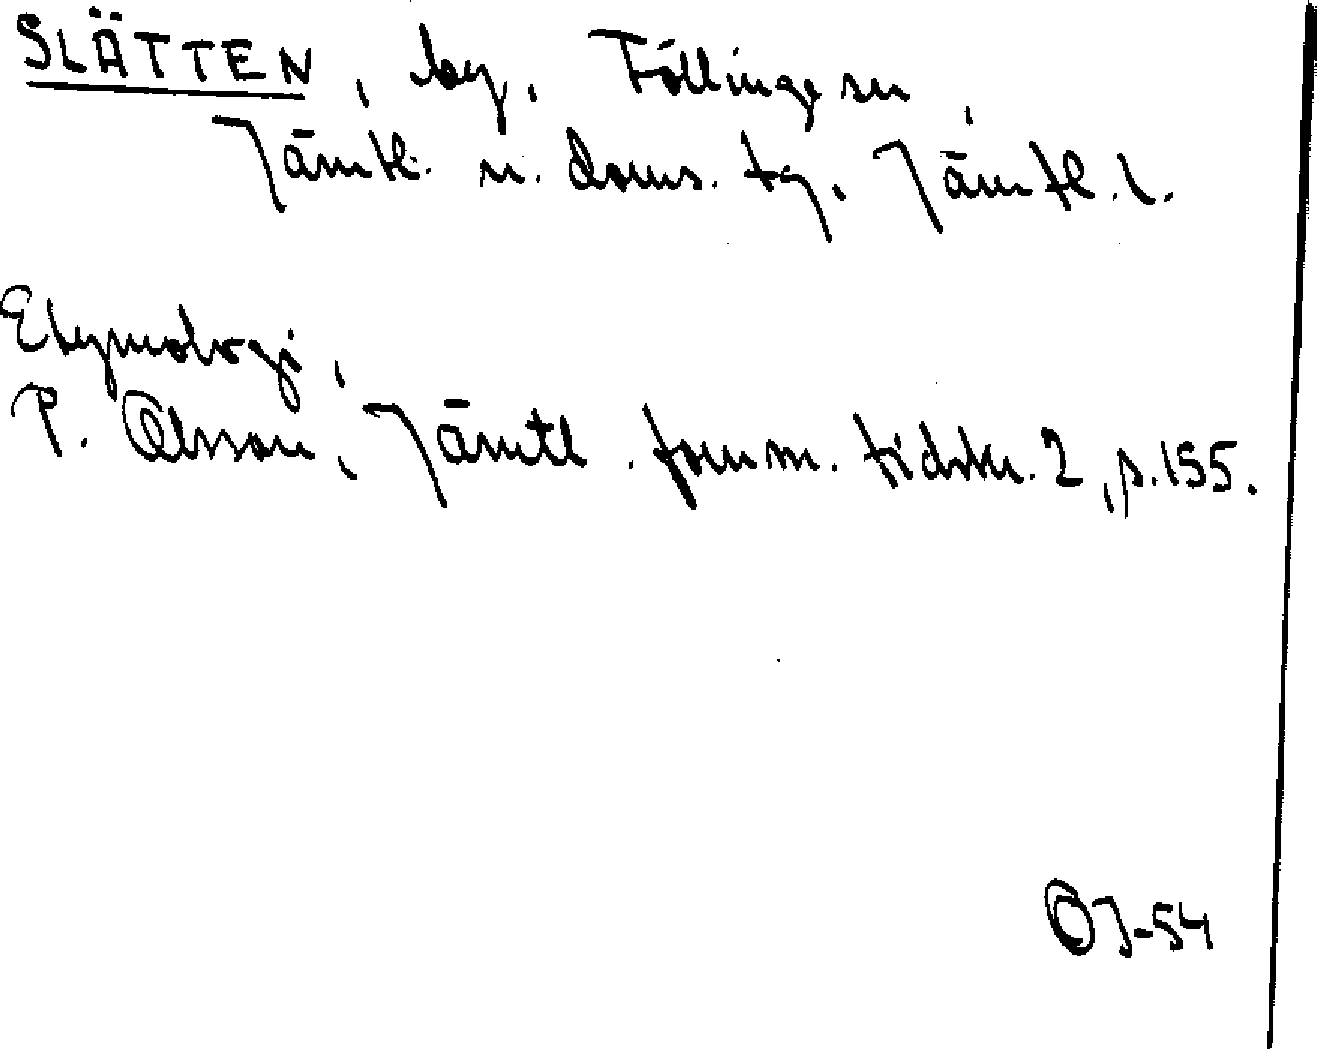 SLÄTTEN, by, Föllinge sn,
Jämtl. n. doms. tg, Jämtl. l.
Etymologi,
P. Olsson, Jämtl. fornm. tidskr. 2, s. 155.
OJ-54